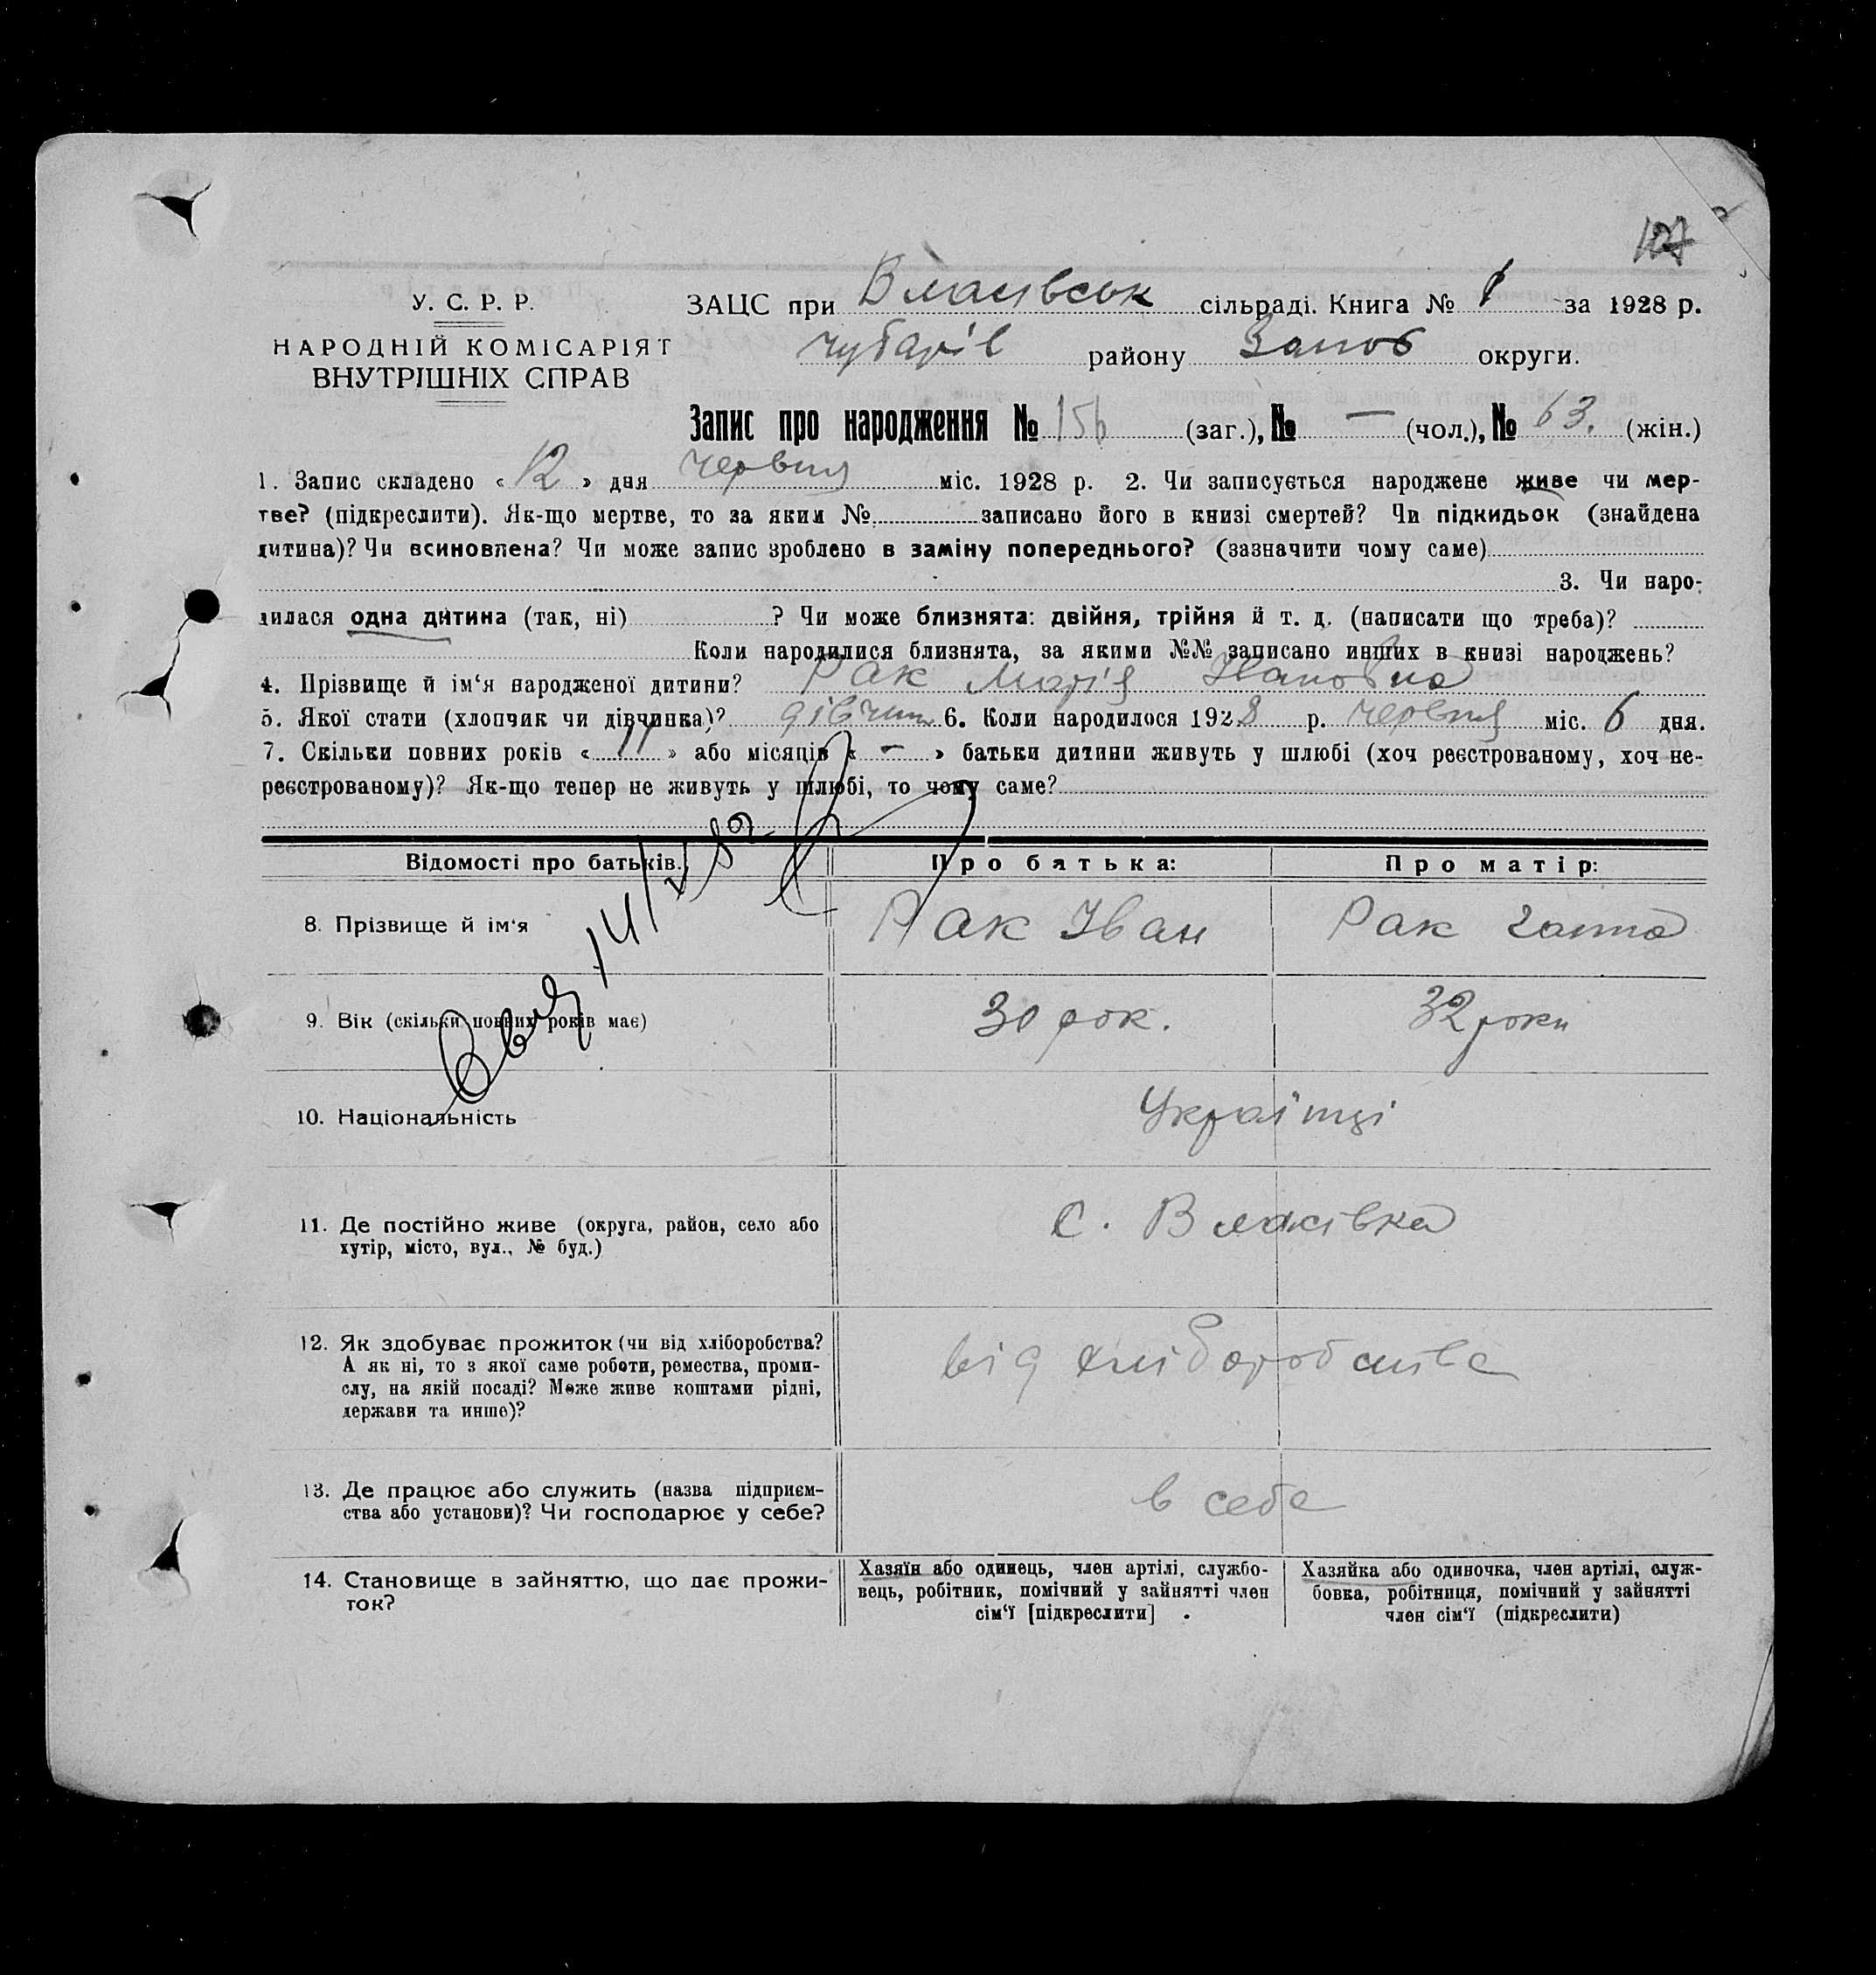 У. С. Р. Р.
НАРОДНІЙ КОМІСАРІЯТ
ВНУТРІШНІХ СПРАВ
ЗАЦС при Власівськ сільраді. Книга № 1 за 1928 р.
Чубарів району Запоб округи.
Запис про народження № 156 (заг.), № — (чол.), № 63. (жін.)
1. Запис складено « 12 » дня червня міс. 1928 р. 2. Чи записується народжене живе чи мер-
тве? (підкреслити). Як-що мертве, то за яким № записано його в книзі смертей? Чи підкидьок (знайдена
дитина)? Чи всиновлена? Чи може запис зроблено в заміну попереднього? (зазначити чому саме)
3. Чи наро-
дилася одна дитина (так, ні) ? Чи може близнята: двійня, трійня й т. д. (написати що треба)?
Коли народилися близнята, за якими №№ записано инших в книзі народжень?
4. Прізвище й ім‘я народженої дитини? Рак Марія Івановна
5. Якої стати (хлопчик чи дівчинка)? дівчин 6. Коли народилося 1928 р. червня міс. 6 дня.
7. Скільки повних років « 11 » або місяців « — » батьки дитини живуть у шлюбі (хоч реєстрованому, хоч не-
реєстрованому)? Як-що тепер не живуть у шлюбі, то чому саме?
Відомості про батьків. Про батька: Про матір:
8. Прізвище й ім‘я Рак Іван Рак Ганна
9. Вік (скільки повних років має) 30 рок. 32 роки
10. Національність Українці
11. Де постійно живе (округа, район, село або
хутір, місто, вул., № буд.)
с. Власівка
12. Як здобуває прожиток (чи від хліборобства?
А як ні, то з якої саме роботи, ремества, проми-
слу, на якій посаді? Може живе коштами рідні,
держави та инше)?
від хліборобства
13. Де працює або служить (назва підприєм-
ства або установи)? Чи господарює у себе?
в себе
14. Становище в зайняттю, що дає прожи-
ток?
Хазяїн або одинець, член артілі, службо-
вець, робітник, помічний у зайнятті член
сім‘ї [підкреслити]
Хазяйка або одиночка, член артілі, служ-
бовка, робітниця, помічний у зайнятті
член сім‘ї (підкреслити)